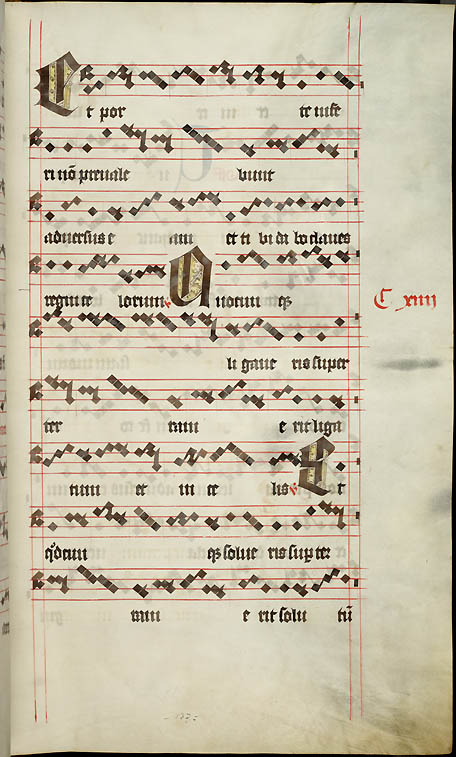 Et por te infe
ri nō preuale bunt
aduersus e am et ti bi da bo claues
regni ce lorum Quotcun qȝ
li gaue ris super
ter ram e rit liga
tum et in ce lis Et
qȝ solue ris sup ter
ram e rit solu tū
C xiiij